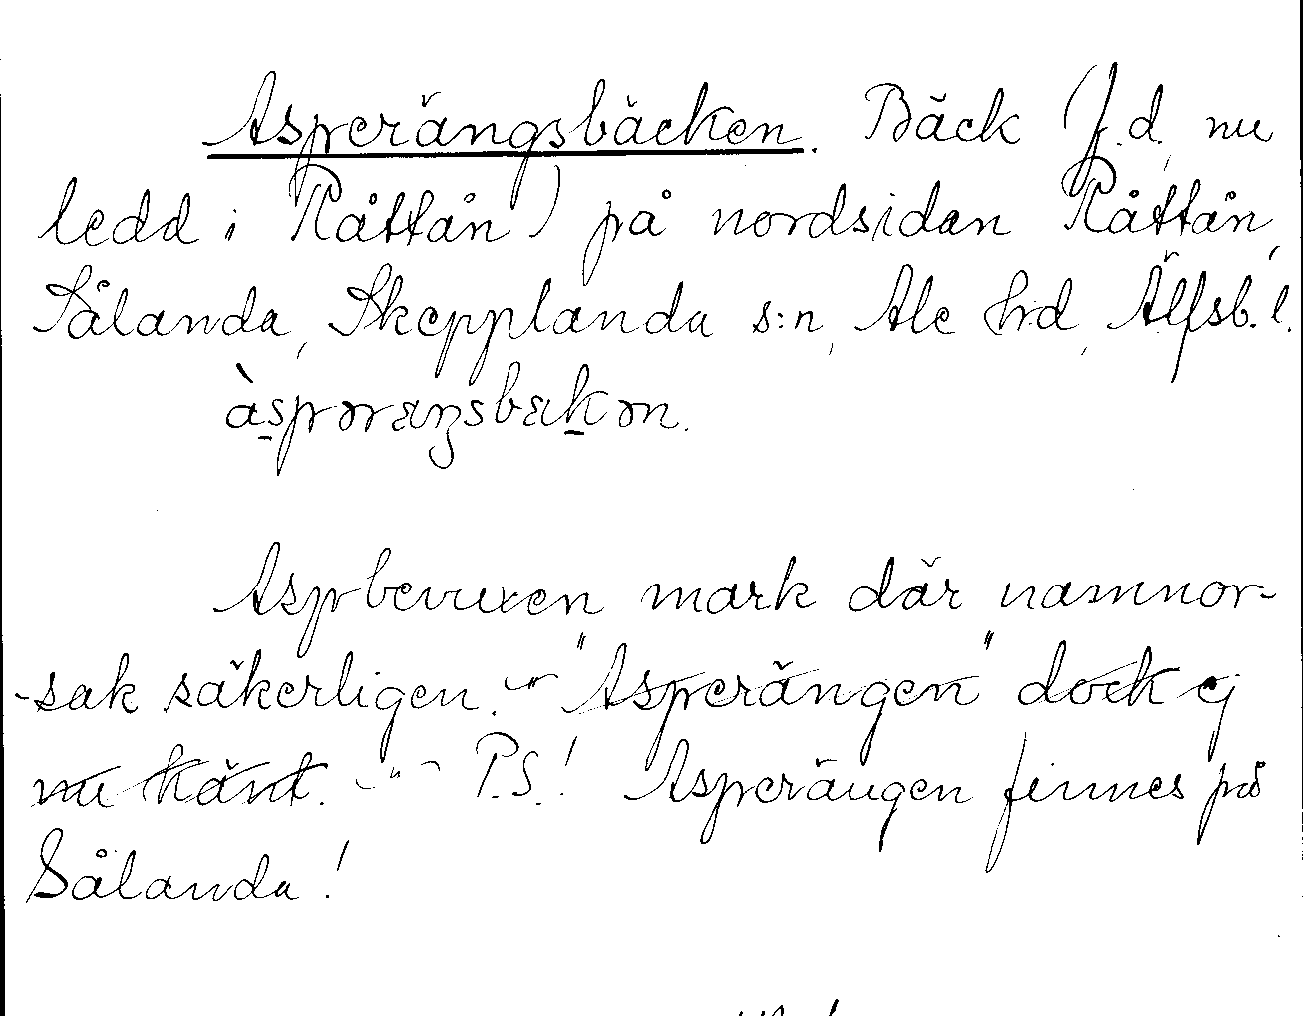 Asperängsbäcken. Bäck (f.d. nu
ledd i Råttån) på nordsidan Råttån,
Sålanda, Skepplanda s:n, Ale hrd, Älfsb. l.
àspəräŋsbäkən.
Aspbevuxen mark där namnor-
-sak säkerligen. -"- "Asperängen" dock ej
nu känt. -"- P.S.! Asperängen finnes på
Sålanda!